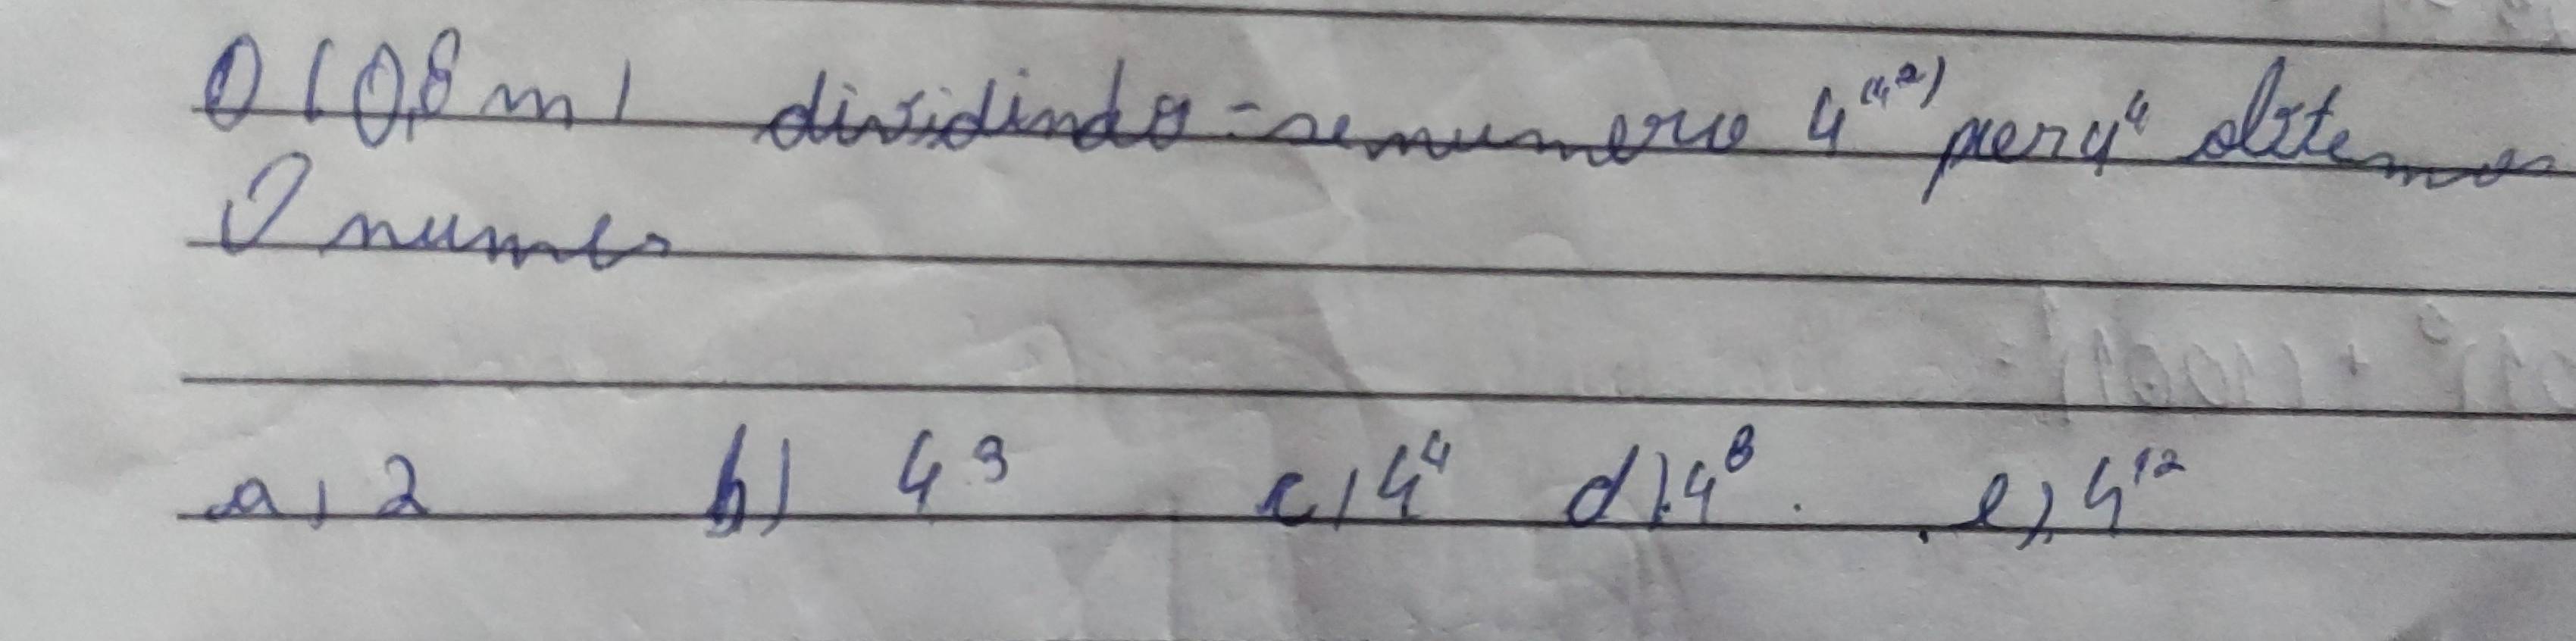 (OBM) dividindo-se numero 4^(4^2) por 4^4 obtemos
O numero
a) 2 b) 4^3 c) 4^4 d) 4^8 e) 4^12